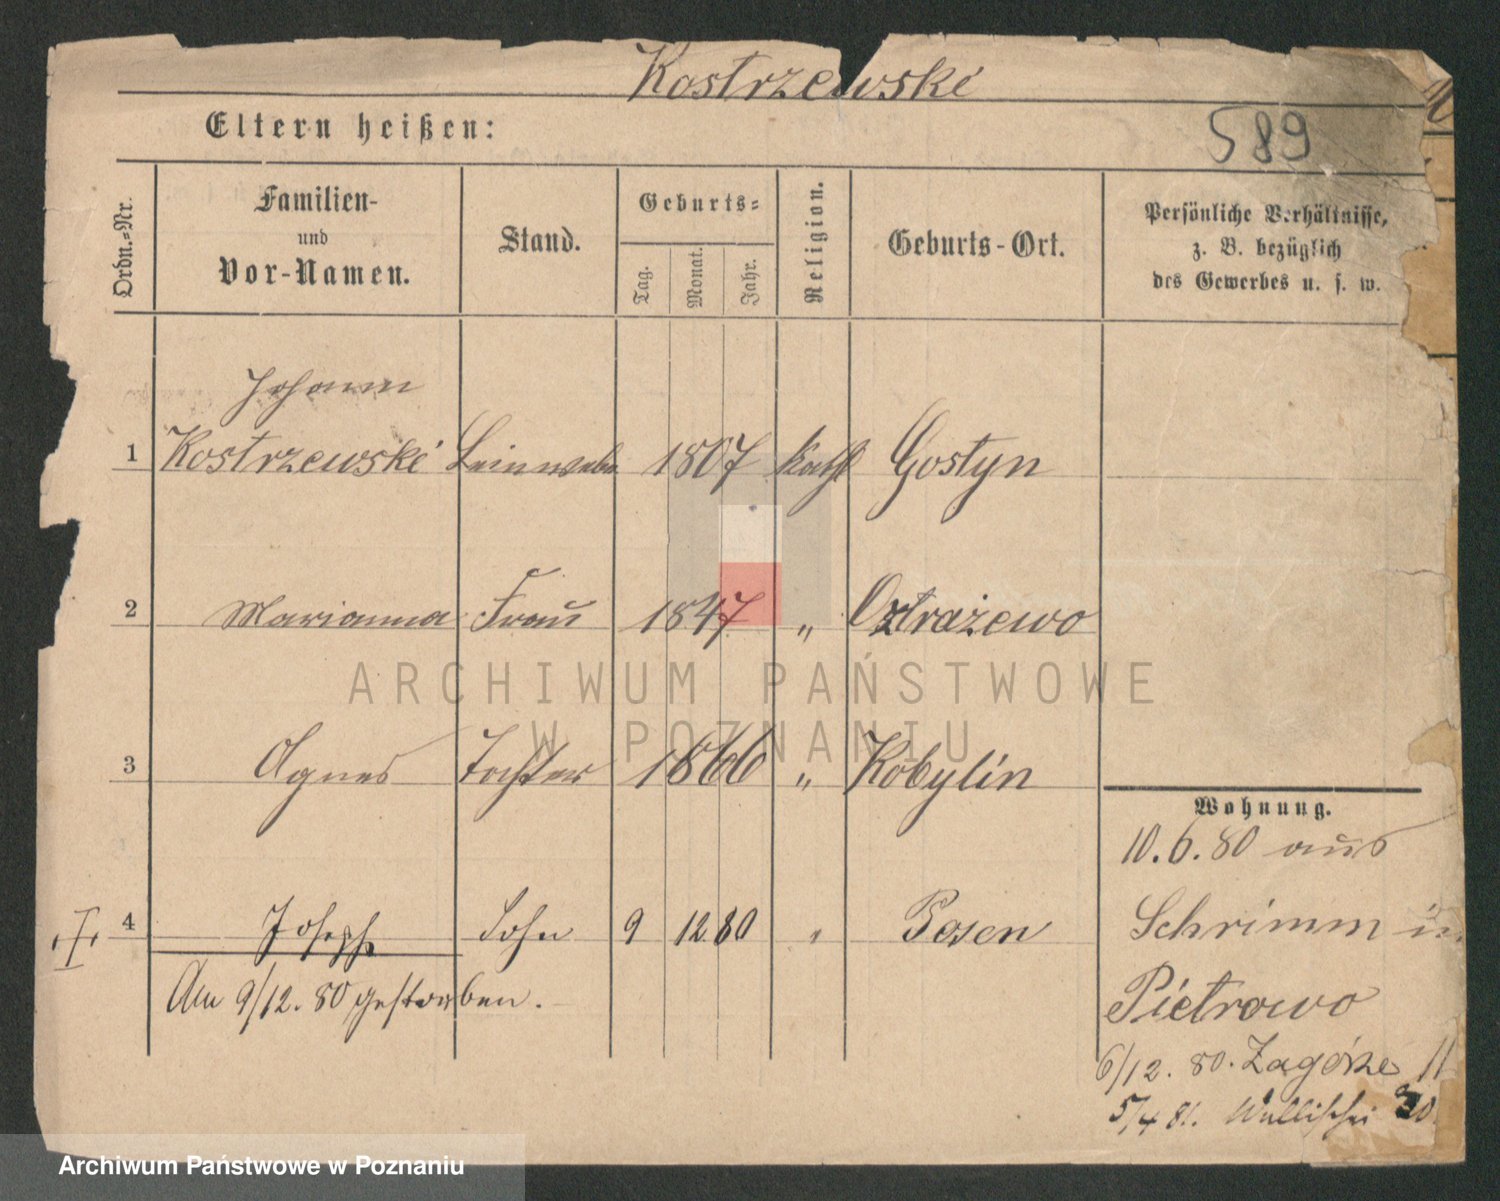 Kostrzewski
Eltern heißen:
589
Ordn.-Nr.
Familien-
und
Vor-Namen.
Stand.
Geburts-
Tag.
Monat.
Jahr.
Religion.
Geburts-Ort.
Persönliche Verhältnisse,
z. B. bezüglich
des Gewerbes u. s. w.
Johann
1 Kostrzewski Leinwebe 1807 kath Gostyn
2 Marianna Frau 1847 " Ostrażewo
3 Agnes Tochter 1866 " Kobylin
Wohnung.
10.6.80 aus
4 Joseph Sohn 9 12 80 " Posen
Schrimm in
Am 9/12. 80 gestorben.
Pietrowo
6/12. 80. Zagórze 11
5/4 81. Wallischei 30
ARCHIWUM PAŃSTWOWE
W POZNANIU
Archiwum Państwowe w Poznaniu